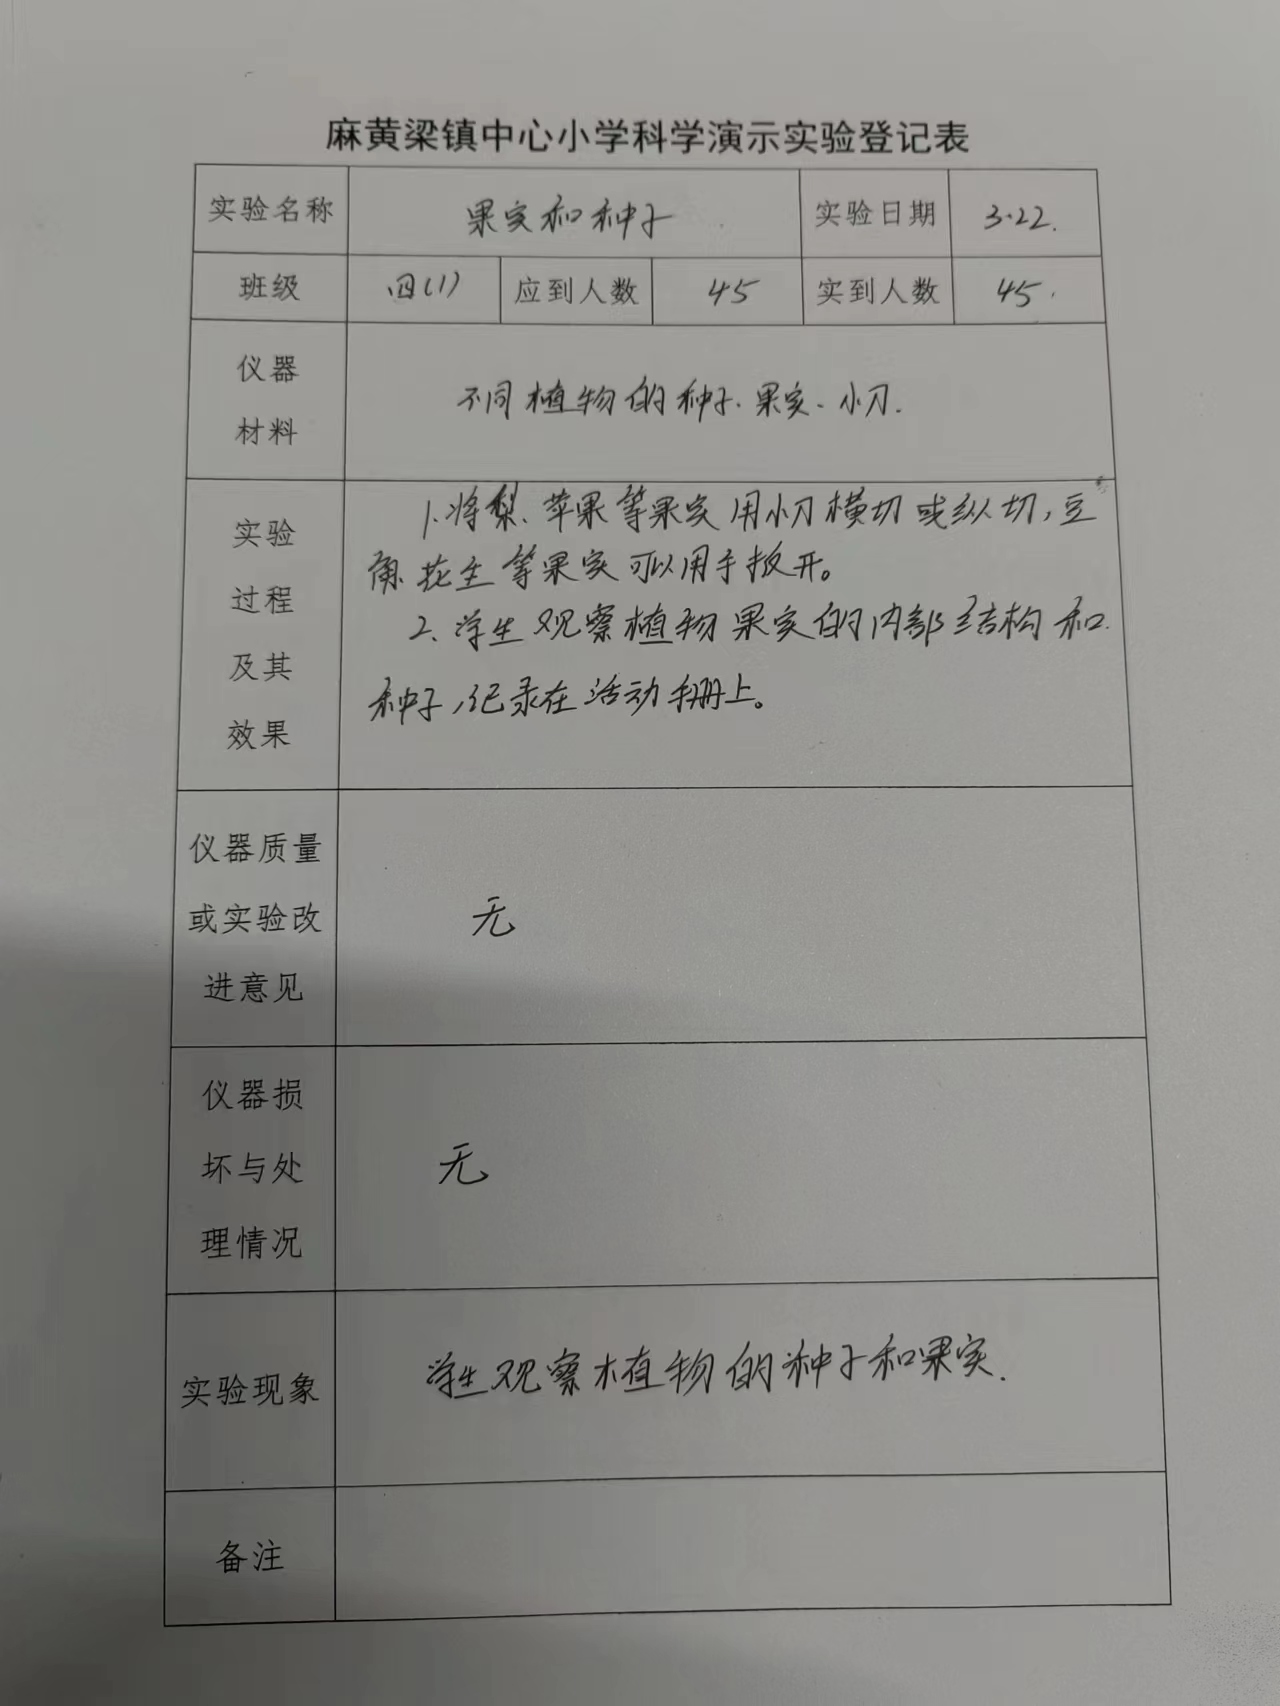 麻黄梁镇中心小学科学演示实验登记表
实验名称 果实和种子 实验日期 3.22.
班级 四(1) 应到人数 45 实到人数 45.
仪器
材料
不同植物的种子、果实、小刀.
实验
过程
及其
效果
1.将梨、苹果等果实用小刀横切或纵切,豆
角、花生等果实可以用手扳开。
2、学生观察植物果实的内部结构和
种子,记录在活动手册上。
仪器质量
或实验改
进意见
无
仪器损
坏与处
理情况
无
实验现象 学生观察植物的种子和果实.
备注